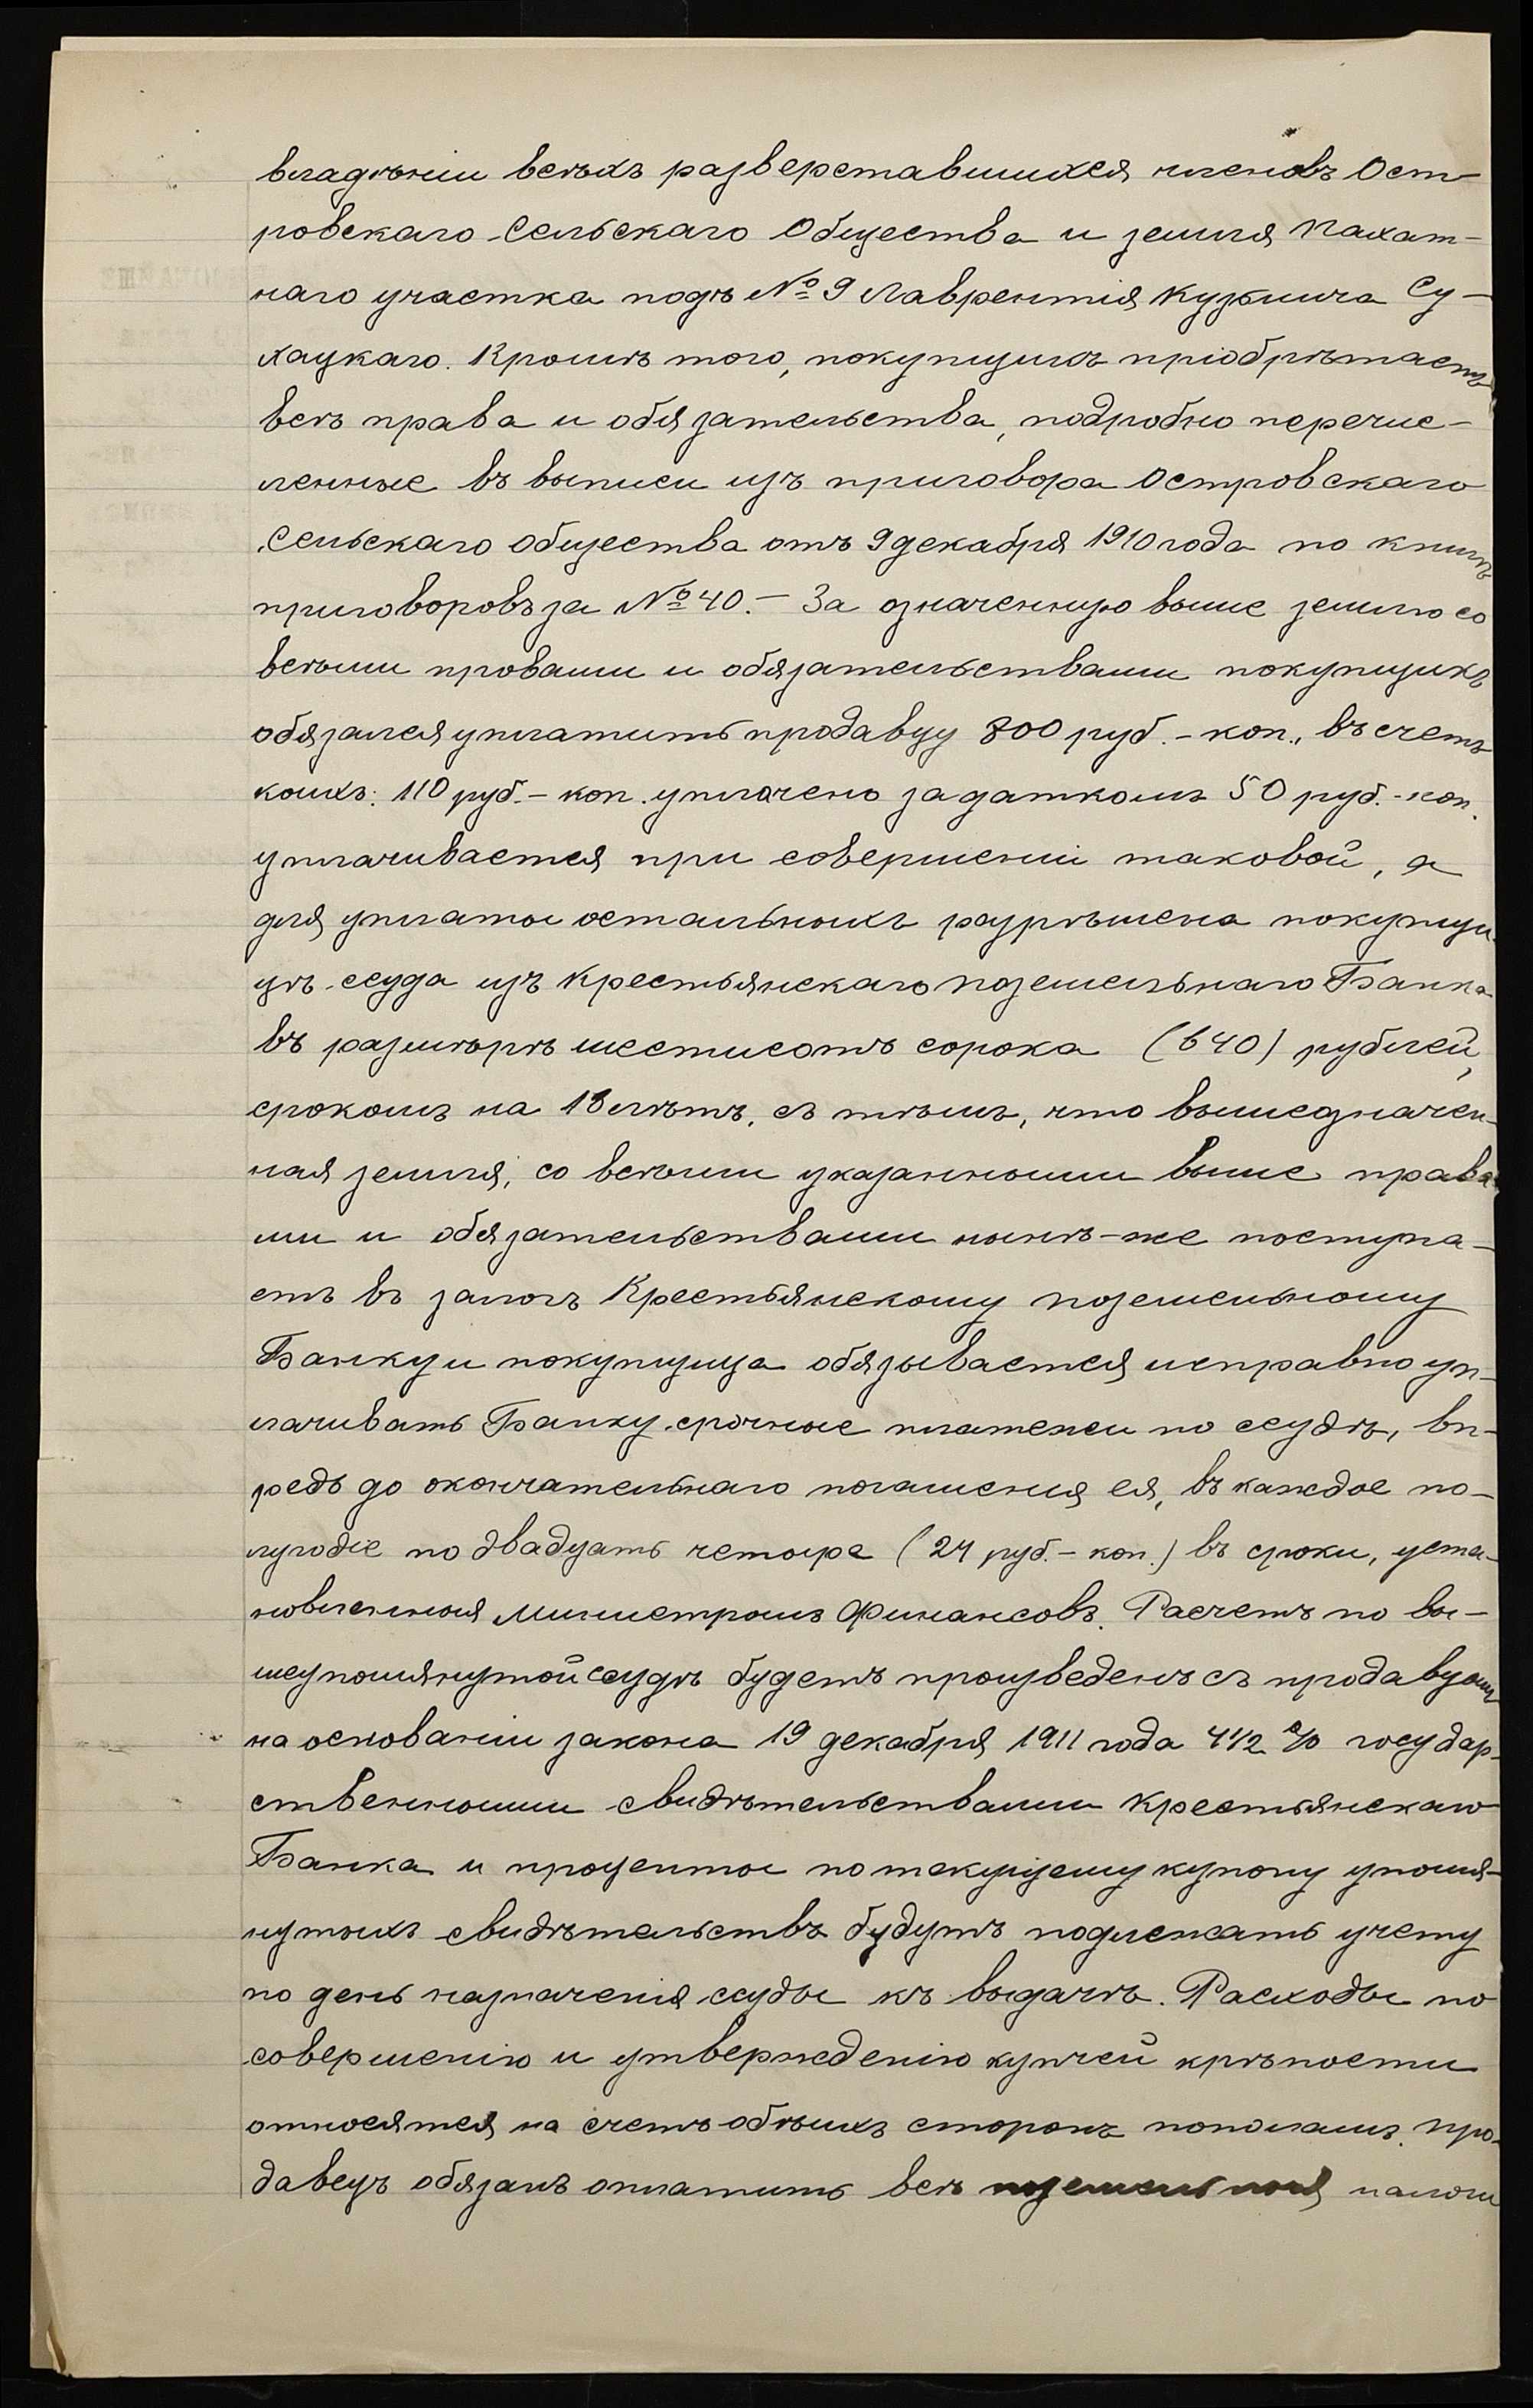 владѣніи всѣхъ разверставшихся членовъ Ост-
ровскаго Сельскаго Общества и земля пахат-
наго участка подъ № 9 Лаврентія Кузьмича Су-
хацкаго. Кромѣ того, покупщикъ пріобрѣтаетъ
всѣ права и обязательства, подробно перечис-
ленные въ выписи изъ приговора Островскаго
Сельскаго Общества отъ 9 декабря 1910 года по книгѣ
приговоровъ за № 40. – За означенную выше землю со
всѣми провами и обязательствами покупщикъ
обязался уплатить продавцу 800 руб. – коп., въ счетъ
коихъ: 110 руб. – коп. уплачено задаткомъ 50 руб. – коп.
уплачивается при совершеніи таковой, а
для уплаты остальныхъ разрѣшена покупщи-
цѣ ссуда изъ Крестьянскаго Поземельнаго Банка
въ размѣрѣ шестисотъ сорока (640) рублей,
срокомъ на 18 лѣтъ, съ тѣмъ, что вышеозначен-
ная земля, со всѣми указанными выше права-
ми и обязательствами нынѣ-же поступа-
етъ въ залогъ Крестьянскому Поземельному
Банку и покупщица обязывается исправно уп-
лачивать Банку срочные платежи по ссудѣ, вп-
редь до окончательнаго погашенія ея, въ каждое по-
лугодіе по двадцать четыре (24 руб. – коп.) въ сроки, уста-
новленныя Министромъ Финансовъ. Расчетъ по вы-
шеупомянутой ссудѣ будетъ произведенъ съ продавцомъ
на основаніи закона 19 декабря 1911 года 4 1/2 % государ-
ственными свидѣтельствами Крестьянскаго
Банка и проценты по текущему купону упомя-
нутыхъ свидѣтельствъ будутъ подлежать учету
по день назначенія ссуды къ выдачѣ. Расходы по
совершенію и утвержденію купчей крѣпости
относятся на счетъ обѣихъ сторонъ пополамъ. Про-
давецъ обязанъ оплатить всѣ поземельныя налоги